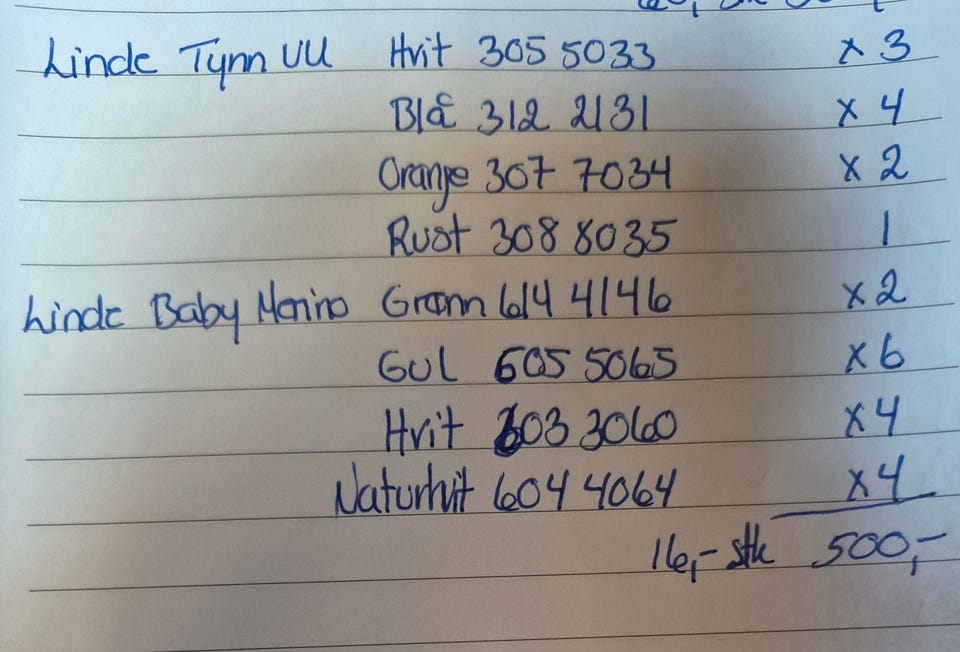 Linde Tynn Ull Hvit 305 5033 x 3
Blå 312 2131 x 4
Oranje 307 7034 x 2
Rust 308 8035 1
Linde Baby Merino Grønn 614 4146 x2
Gul 605 5065 x6
Hvit 603 3060 x4
Naturhvit 604 4064 x4
16,- stk 500,-